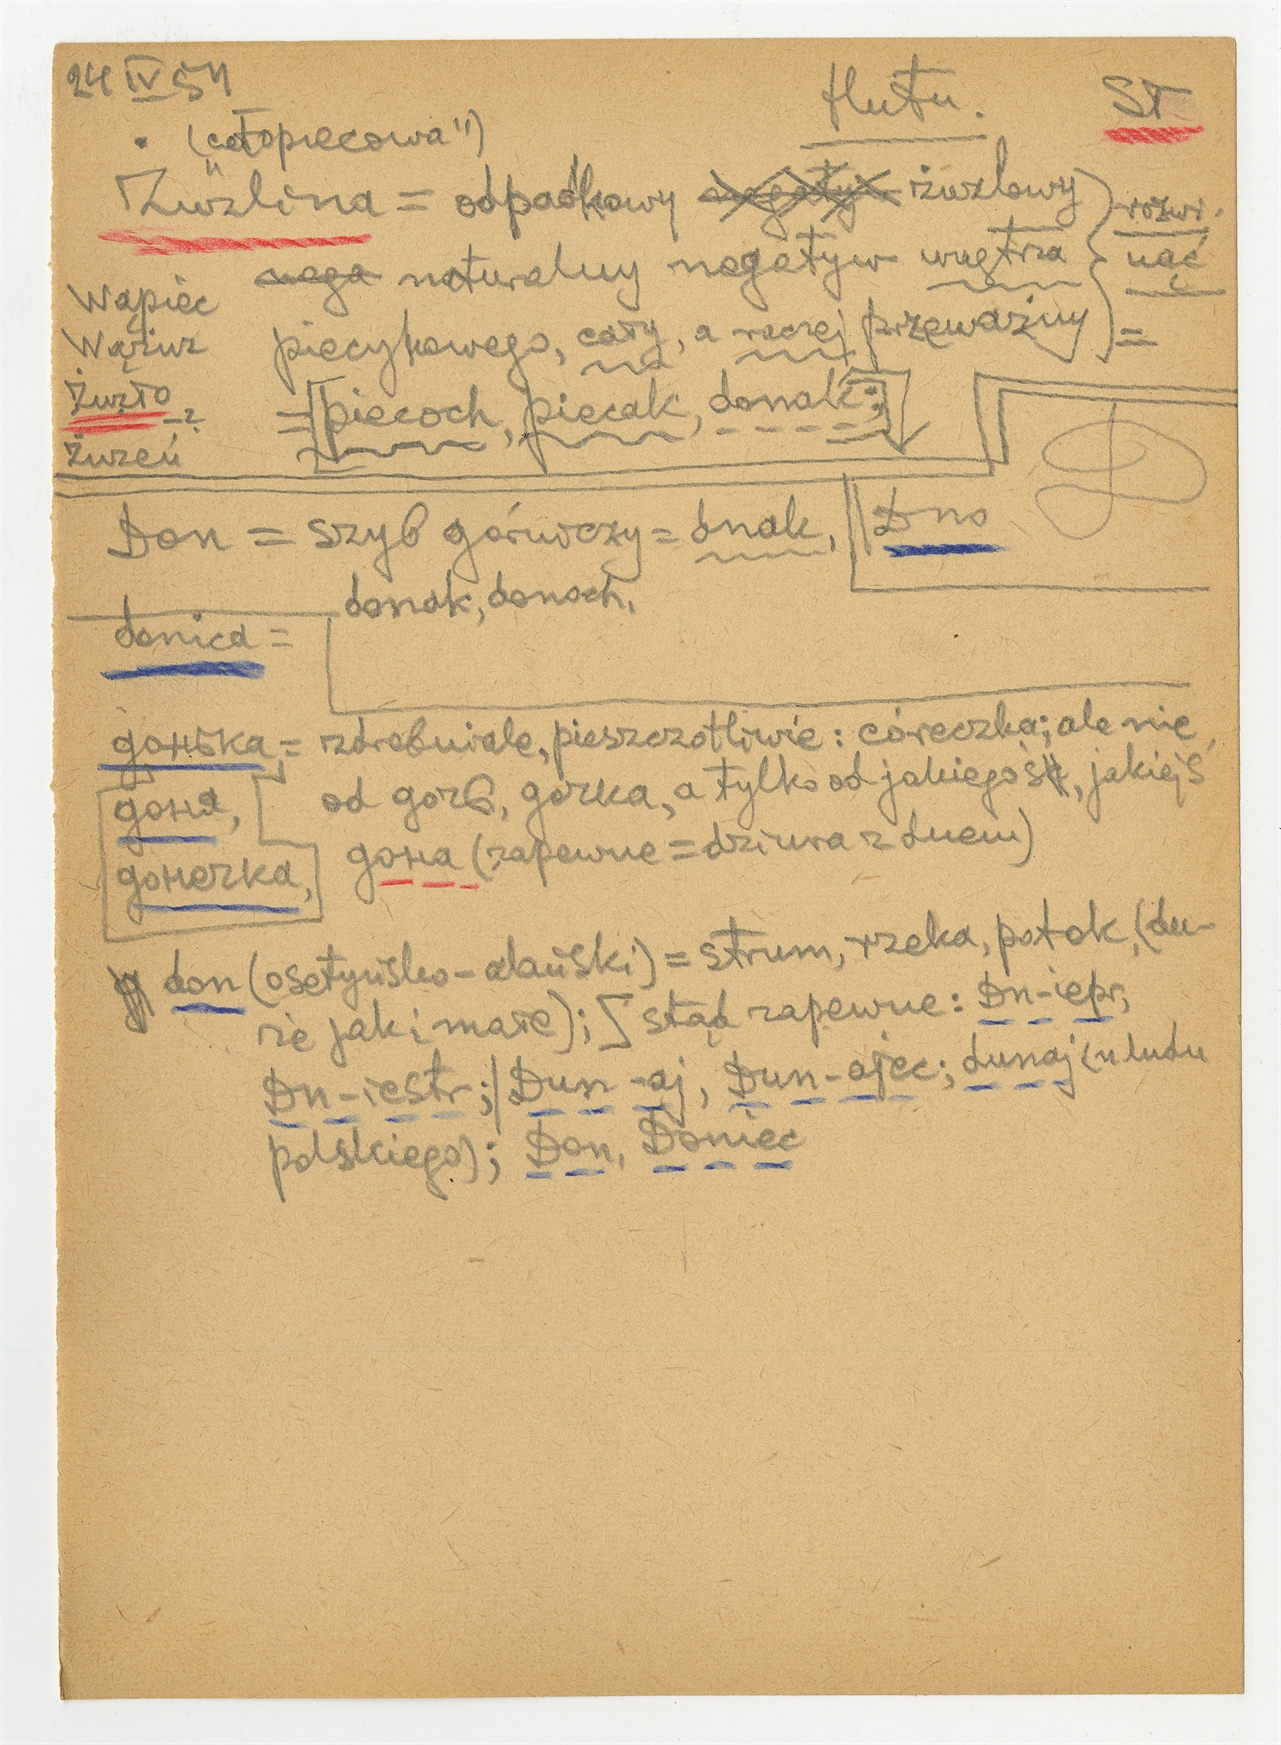 24 IV 54
Hutn.
ST
(całopiecowa")
Żużlina = odpadkowy negatyw żużlowy
naga naturalny negatyw wnętrza
rozwi-
nąć
=
piecykowego, cały, a raczej przeważny
= piecoch, piecak, donak;
Wąpiec
Wążuż
Żuzło - ?
Żużeń
Don = szyb górniczy = dnak,
donak, donoch,
Dno
donica =
донька = zdrobniale, pieszczotliwie: córeczka; ale nie
доня, od gorb, górka, a tylko od jakiegoś, jakiejś
донечка, дона (zapewne = dziura z dnem)
don (osetyńsko-alański) = strum, rzeka, potok, (du-
że jak i małe); stąd zapewne: Dn-iepr,
Dn-iestr; Dun-aj, Dun-ajec; dunaj (u ludu
polskiego); Don, Doniec